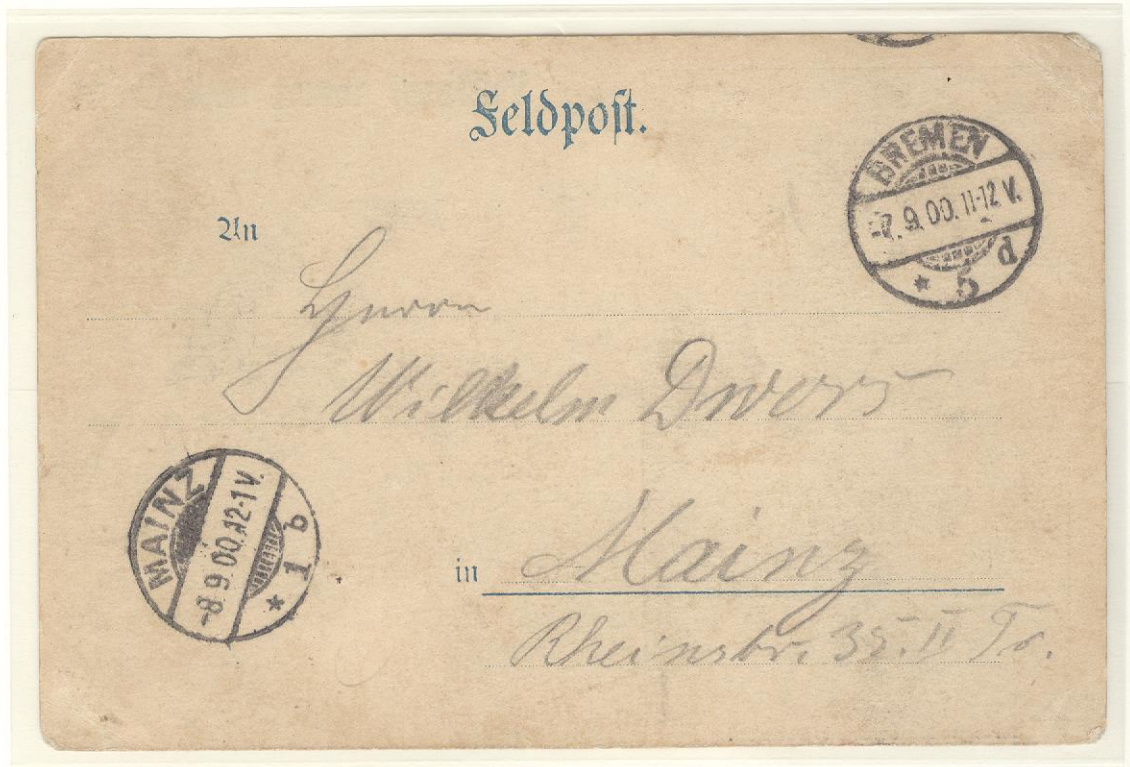 Feldpost.
BREMEN
-7.9.00.11-12 V.
* 5 d
An
Herrn
Wilhelm
MAINZ
-8 9 00.12-1 V.
* 1 b
in Mainz
Rheinstr. 35. II Tr.